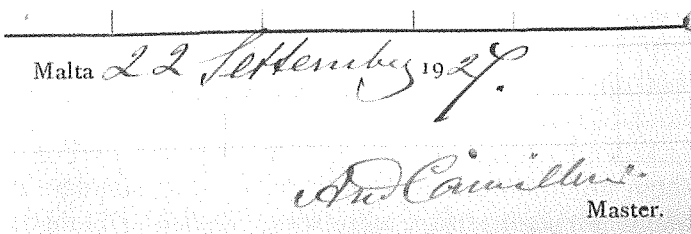 Malta 22 Settembre 1927.
And Camilleri
Master.